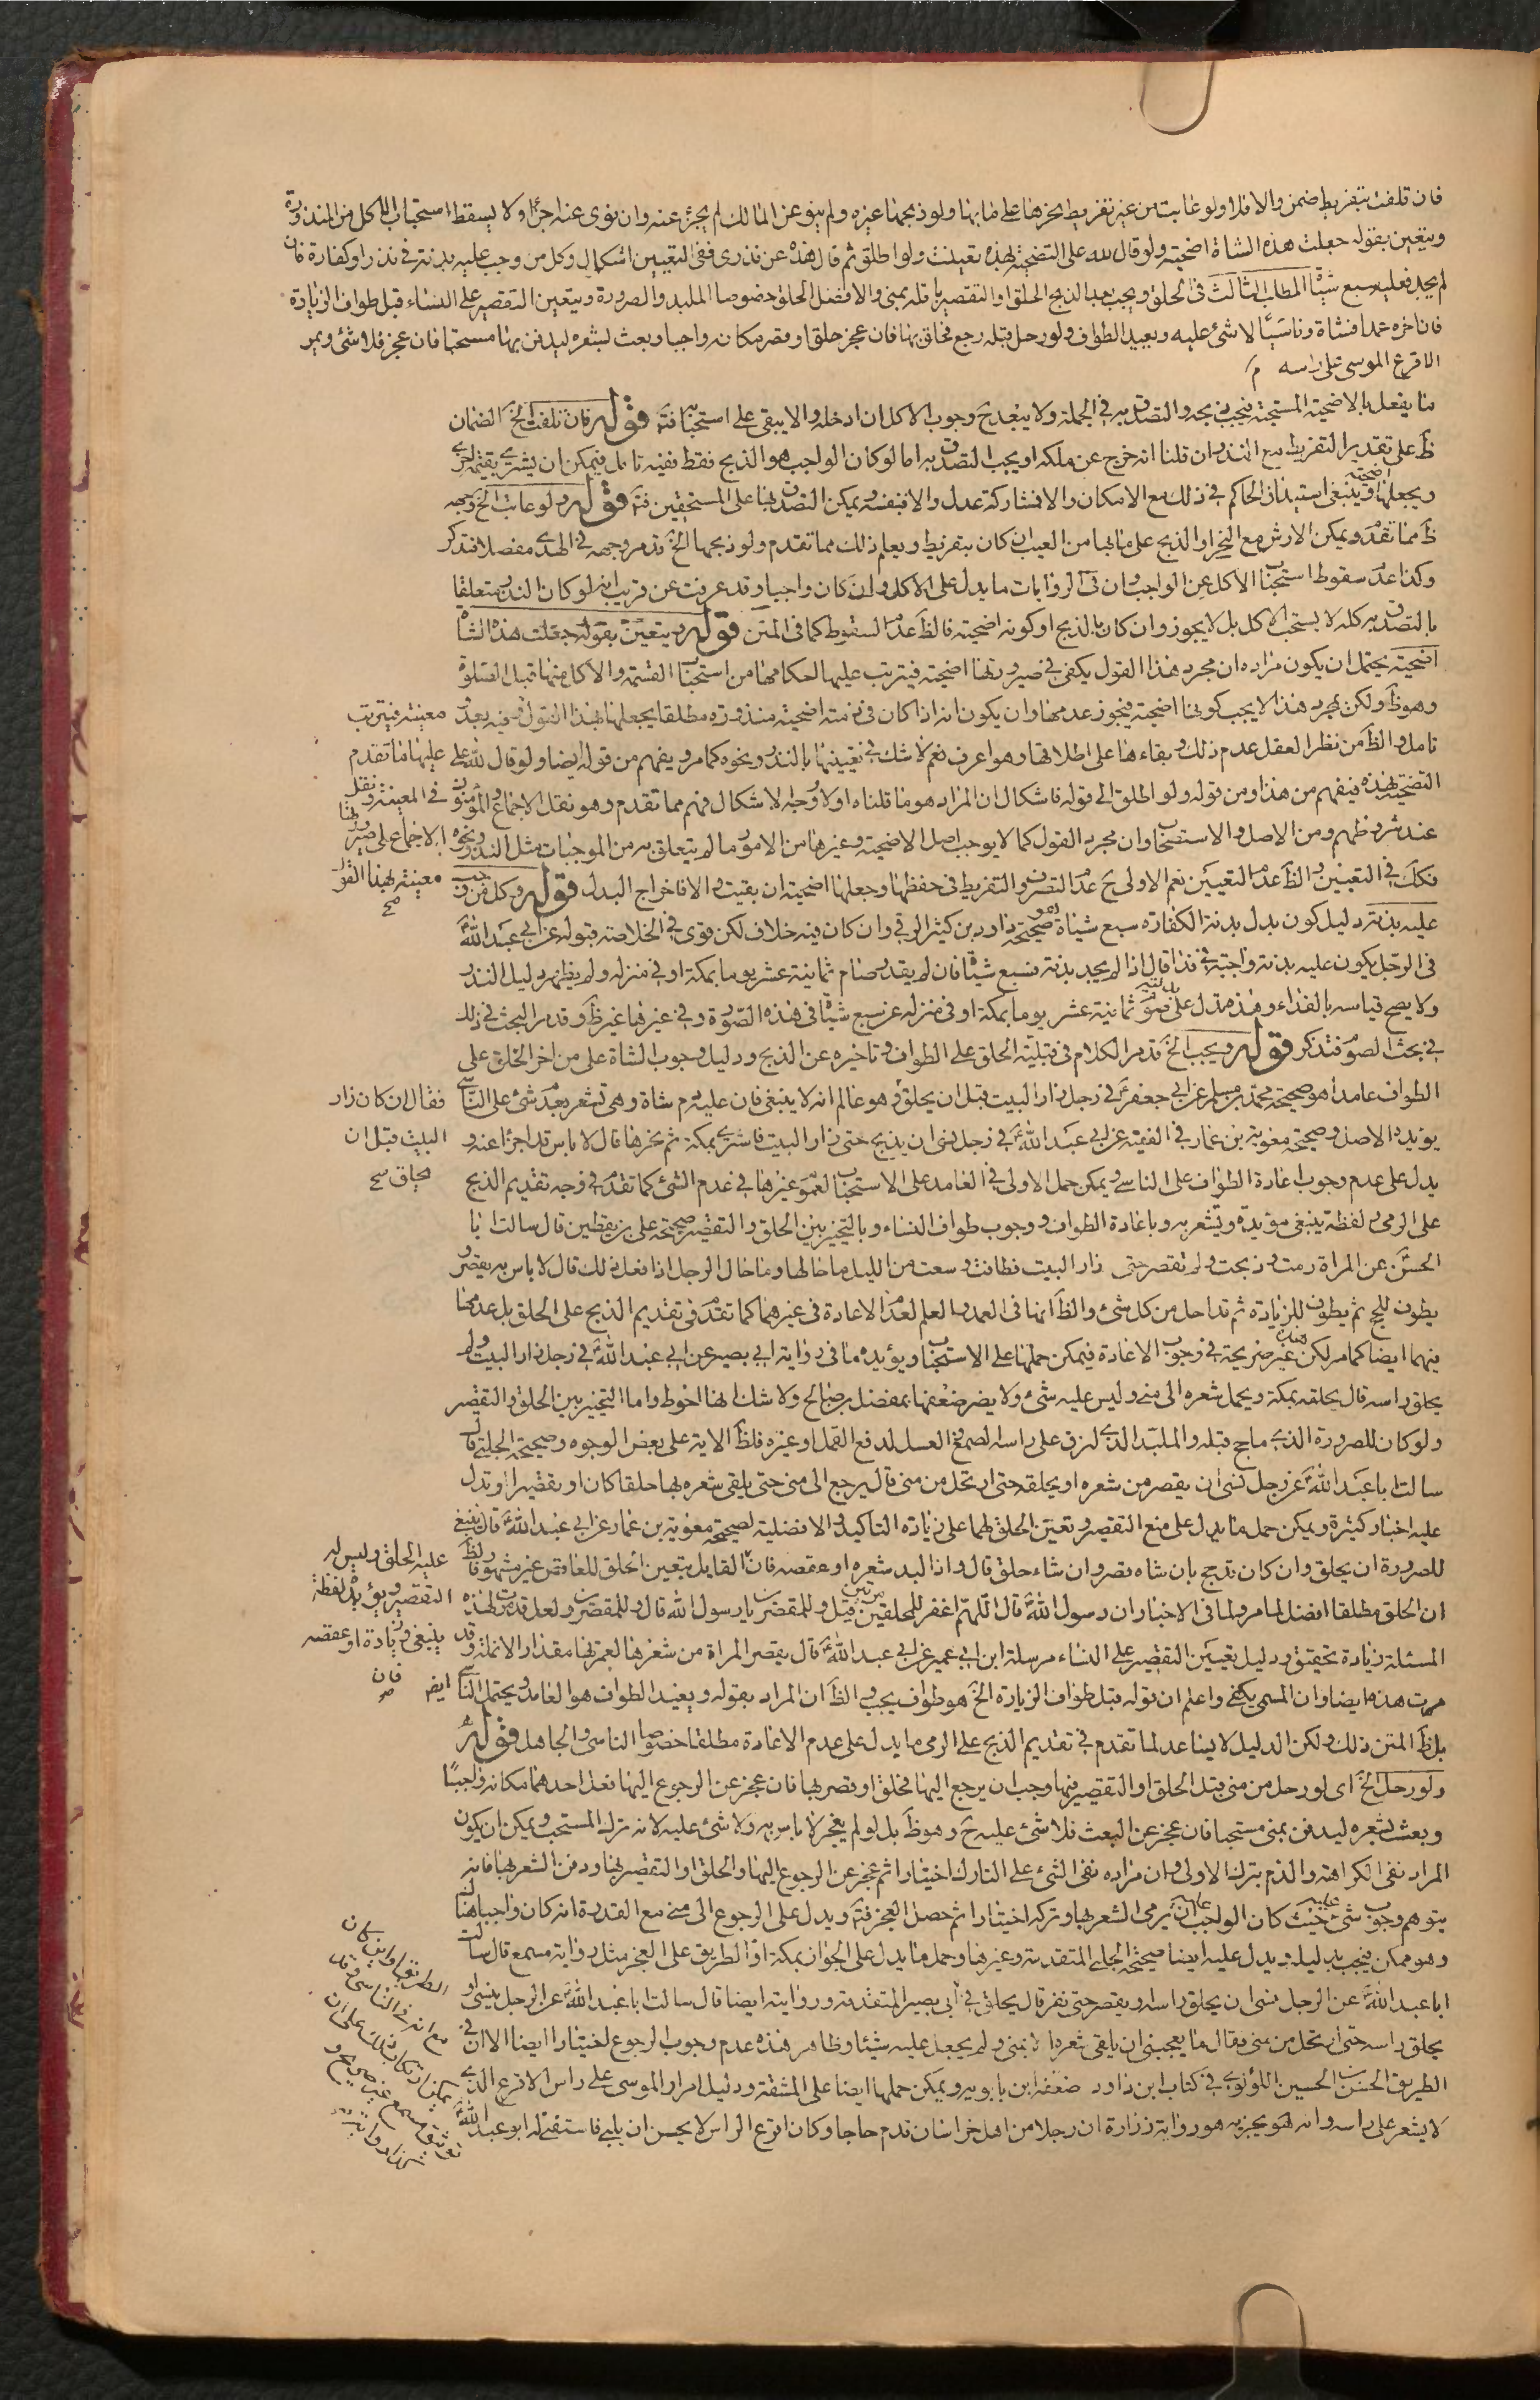 فان تلفت بتفريط ضمن والا فلا ولو عابت من غير تفريط نحرها على ما بها ولو ذبحها غيره ولم ينو عن المالك لم يجزء عنه وان نوى عنه اجزأ ولا يسقط استحباب الاكل من المنذورة
ويتعين بقوله جعلت هذه الشاة اضحية ولو قال لله على التضحية بهذه تعينت ولو اطلق ثم قال هذه عن نذرى ففى التعيين اشكال وكل من وجب عليه بدنة في نذر او كفارة فان
لم يجد فعليه سبع شياة المطلب الثالث في الحلق ويجب بعد الذبح الحلق او التقصير باقله بمنى والافضل الحلق خصوصا الملبد والصرورة ويتعين التقصير على النساء قبل طواف الزيارة
فان اخره عمدا فشاة وناسيا لا شئ عليه ويعيد الطواف ولو رحل قبله رجع فحلق بها فان عجز حلق او قصر مكانه واجبا وبعث بشعره ليدفن بها مستحبا فان عجز فلا شئ ويمر
الاقرع الموسى على راسه
ما يفعل بالاضحية المستحبة فيجب ذبحه والتصدق به في الجملة ولا يبعد ح وجوب الاكل ان ادخله والا يبقى على استحبابه فت قوله فان تلفت الخ الضمان
ظ على تقدير التفريط مع النذر ان قلنا انه خرج عن ملكه او يجب التصدق به اما لو كان الواجب هو الذبح فقط ففيه تامل فيمكن ان يشترى بقيته اخرى
ويجعلها اضحية وينبغي استيذان الحاكم في ذلك مع الامكان والا فبشاركة عدل والا فبنفسه ويمكن التصدق بها على المستحقين فت قوله ولو عابت الخ وجهه
ظ مما تقدم ويمكن الارش مع النحر او الذبح على ما بها من العيب ان كان بتفريط ويعلم ذلك مما تقدم ولو ذبحها الخ قد مر وجهه في الهدى مفصلا فتذكر
وكذا عدم سقوط استحباب الاكل عن الواجب وان في الروايات ما يدل على الاكل وان كان واجبا وقد عرفت عن قريب انه لو كان النذر متعلقا
بالتصدق به كله لا يستحب الاكل بل لا يجوز وان كان بالذبح او كونه اضحية فالظ عدم السقوط كما في المتن قوله ويتعين بقوله جعلت هذه الشاة
اضحية يحتمل ان يكون مراده ان مجرد هذا القول يكفى في صيرورتها اضحية فيترتب عليها احكامها من استحباب القسمة والاكل منها قبل الصلوة
وهو ظ ولكن بمجرد هذا لا يجب كونها اضحية فيجوز عدمها وان يكون انه اذا كان في ذمته اضحية منذورة مطلقا يجعلها بهذا القول فيه بعد معينة فيترتب
تامل والظ من نظر العقل عدم ذلك وبقاءها على اطلاقها وهو اعرف نعم لا شك في تعيينها بالنذر ونحوه كما مر ويفهم من قوله ايضا ولو قال لله على عليها ما تقدم
التضحية بهذه فيفهم من هذا ومن قوله ولو اطلق الى قوله فاشكال ان المراد هو ما قلناه اولا وجه الاشكال فهم مما تقدم وهو نقل الاجماع والمؤمنون في المعينة ونقل
عند شروطهم ومن الاصل والاستصحاب وان مجرد القول كما لا يوجب اصل الاضحية وغيرها من الامور ما لم يتعلق به من الموجبات مثل النذر ونحوه الاجماع على صيرورتها
فكك في التعيين والظ عدم التعيين نعم الاولى ح عدم التصرف والتفريط في حفظها وجعلها اضحية ان بقيت والا فاخراج البدل قوله وكل من وجب معينة بهذا القول صح
عليه بدنة دليل كون بدل بدنة الكفارة سبع شياة هو صحيحة داود بن كثير الرقى وان كان فيه خلاف لكن قوى في الخلاصة قبوله عن ابي عبد الله
في الرجل يكون عليه بدنة واجبة في فداء قال اذا لم يجد بدنة فسبع شياه فان لم يقدر صام ثمانية عشر يوما بمكة او في منزله ولم يظهر دليل النذر
ولا يصح قياسه بالفداء وهذه تدل على بدلية صوم ثمانية عشر يوما بمكة او في منزله عن سبع شياة في هذه الصورة وفي غيرها غير ظ وقد مر البحث في ذلك
في بحث الصوم فتذكر قوله ويجب الخ قد مر الكلام في قبلية الحلق على الطواف وتاخيره عن الذبح ودليل وجوب الشاة على من اخر الحلق على
الطواف عامدا هو صحيحة محمد بن مسلم عن ابي جعفر في رجل زار البيت قبل ان يحلق وهو عالم انه لا ينبغى فان عليه دم شاة وهى تشعر بعدم شئ على الناسى فقال ان كان زار
يؤيده الاصل وصحيحة معوية بن عمار في الفقيه عن ابي عبد الله في رجل نسى ان يذبح حتى زار البيت فاشترى بمكة ثم نحرها قال لا باس قد اجزا عنه و البيت قبل ان
يدل على عدم وجوب اعادة الطواف على الناسى ويمكن حمل الاولى في العامد على الاستحباب لعموم غيرها في عدم الشئ كما تقدم في وجه تقديم الذبح يحلق صح
على الرمى ولفظة ينبغى مؤيدة وتشعر به وباعادة الطواف ووجوب طواف النساء وبالتخيير بين الحلق والتقصير صحيحة على بن يقطين قال سالت ابا
الحسن عن المراة رمت وذبحت ولم تقصر حتى زار البيت فطافت وسعت من الليل ما حالها وما حال الرجل اذا فعل ذلك قال لا باس به يقصر و
يطوف للحج ثم يطوف للزيارة ثم قد احل من كل شئ والظ انها في العمد والعلم لعدم الاعادة في غيرهما كما تقدم في تقديم الذبح على الحلق بل عدمها
فيهما ايضا كما مر لكن هذه غير صريحة في وجوب الاعادة فيمكن حملها على الاستحباب ويؤيده ما في رواية ابي بصير عن ابي عبد الله في رجل زار البيت ولم
يحلق راسه قال يحلقه بمكة ويحمل شعره الى منى وليس عليه شئ ولا يضر ضعفها بمفضل بن صالح ولا شك انها احوط واما التخيير بين الحلق والتقصير
ولو كان للصرورة الذى ما حج قبله والملبد الذى لزق على راسه الصمغ او العسل لدفع القمل او غيره فلظ الاية على بعض الوجوه وصحيحة الحلبى قال
سالت ابا عبد الله عن رجل نسى ان يقصر من شعره او يحلقه حتى ارتحل من منى قال يرجع الى منى حتى يلقى شعره بها حلقا كان او تقصيرا وتدل
عليه اخبار كثيرة ويمكن حمل ما يدل على منع التقصير وتعين الحلق لهما على زيادة التاكيد والافضلية لصحيحة معوية بن عمار عن ابي عبد الله قال ينبغى
للصرورة ان يحلق وان كان قد حج بان شاء قصر وان شاء حلق قال واذا لبد شعره او عقصه فان القايل بتعين الحلق للعاقص غير مشهور ولظ عليه الحلق وليس له
ان الحلق مطلقا افضل لما مر ولما في الاخبار ان رسول الله قال اللهم اغفر للمحلقين مرتين قيل وللمقصرين يا رسول الله قال وللمقصرين ولعل قد مرت لهذه التقصير ويؤيده لفظة
المسئلة زيادة تحقيق ودليل تعيين التقصير على النساء مرسلة ابن ابي عمير عن ابي عبد الله قال يقصر المراة من شعرها لعمرتها مقدار الانملة وقد ينبغى وزيادة او عقصه
مرت هذه ايضا وان المسمى يكفى واعلم ان قوله قبل طواف الزيارة الخ هو طواف يجب والظ ان المراد بقوله ويعيد الطواف هو العامد ويحتمل الناسى ايض فان صح
بل ظ المتن ذلك ولكن الدليل لا يساعد لما تقدم في تقديم الذبح على الرمى ما يدل على عدم الاعادة مطلقا خصوصا الناسى والجاهل قوله
ولو رحل الخ اى لو رحل من منى قبل الحلق او التقصير فيها وجب ان يرجع اليها فحلق او قصر بها فان عجز عن الرجوع اليها فعل احدهما مكانه واجبا
وبعث بشعره ليدفن بمنى مستحبا فان عجز عن البعث فلا شئ عليه ح وهو ظ بل لو لم يعجز لا باس به ولا شئ عليه لانه ترك المستحب ويمكن ان يكون
المراد نفى الكراهة والذم بترك الاولى وان مراده نفى الشئ على التارك اختيارا ثم عجز عن الرجوع اليها والحلق او التقصير بها ودفن الشعر بها فانه
يتوهم وجوب شئ عليه حيث كان الواجب عليه ان يرمى الشعر بها وتركه اختيارا ثم حصل العجز فت ويدل على الرجوع الى منى مع القدرة انه كان واجبا هنا
وهو ممكن فيجب بدليله ويدل عليه ايضا صحيحة الحلبى المتقدمة وغيرها وحمل ما يدل على الجواز بمكة او الطريق على العجز مثل رواية مسمع قال سالت
ابا عبد الله عن الرجل نسى ان يحلق راسه ويقصر حتى نفر قال يحلق في ابي بصير المتقدمة ورواية ايضا قال سالت ابا عبد الله عن الرجل ينسى ان
يحلق راسه حتى ارتحل من منى فقال ما يعجبنى ان يلقى شعره الا بمنى ولم يجعل عليه شيئا وظاهر هذه عدم وجوب الرجوع اختيارا ايضا الا ان في
الطريق الحسن بن الحسين اللؤلوى في كتاب ابن داود ضعفه ابن بابويه ويمكن حملها ايضا على المشقة ودليل امرار الموسى على راس الاقرع الذى
لا يشعر على راسه وانه هو يجزيه هو رواية زرارة ان رجلا من اهل خراسان قدم حاجا وكان اقرع الراس لا يحسن ان يلبى فاستفتى له ابو عبد الله
الطريق او اين كان